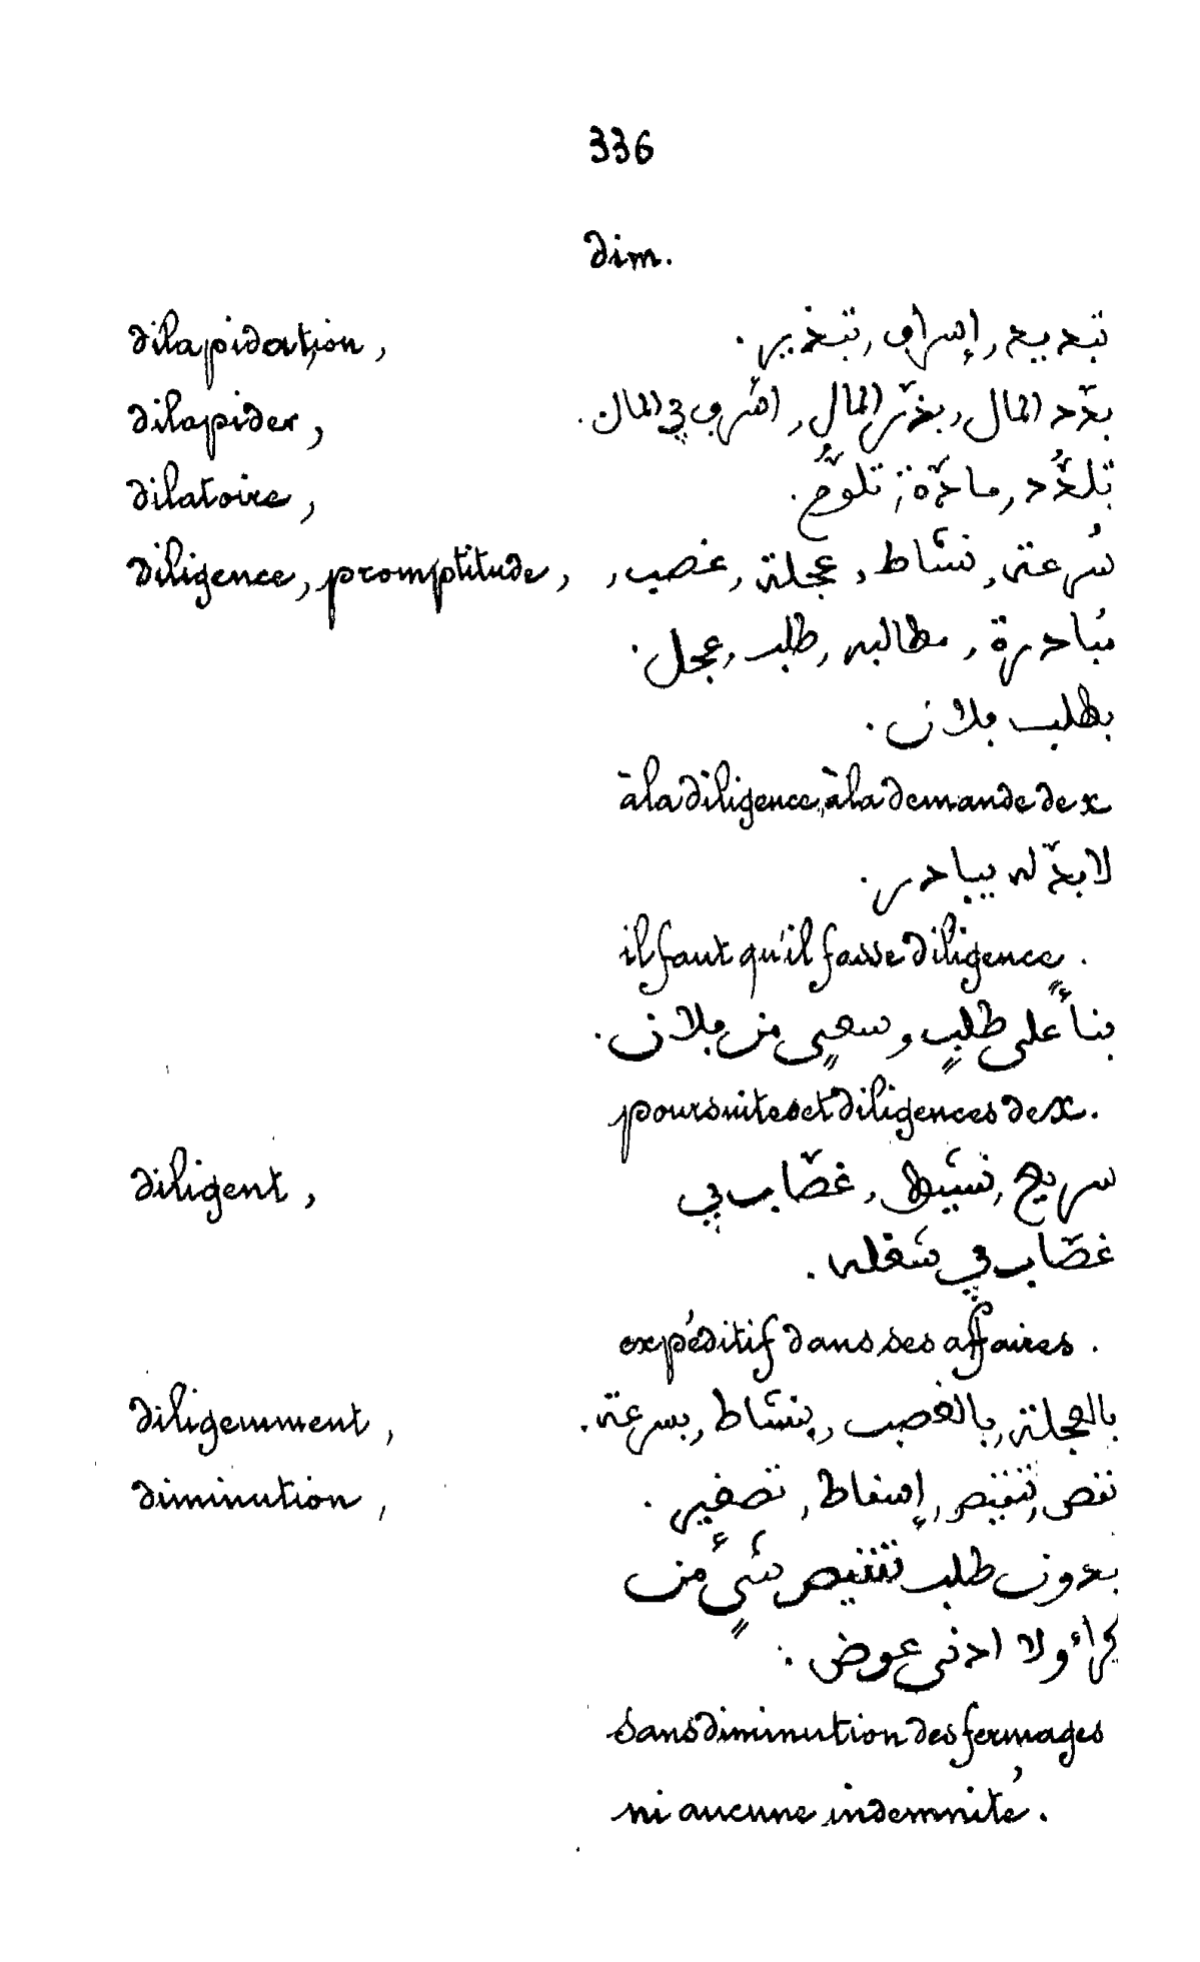 336
dim.
dilapidation, تبديد, إسراف, تبذير.
dilapider, بدّد المال, بذّر المال, اسرف في المال.
dilatoire, تلدُّد, مادّة, تلوُّم.
diligence, promptitude, سُرعة, نشاط, عجلة, غصب,
مُبادرة, مطالبه, طلب, عجل.
بطلب فلان.
à la diligence, à la demande de x
لابدّ له يبادر.
il faut qu'il fasse diligence.
بناءً على طلبٍ وسعيٍ من فلان.
poursuites et diligences de X.
diligent, سريع, نشيط, غصّاب في
غصّاب في شغله.
expéditif dans ses affaires.
diligemment, بالعجلة, بالغصب, بنشاط, بسرعة.
diminution, نقص, تنقيص, إسقاط, تصغير.
بدون طلب تنقيص شيءٍ من
كراء ولا ادنى عوض.
sans diminution des fermages
ni aucune indemnité.